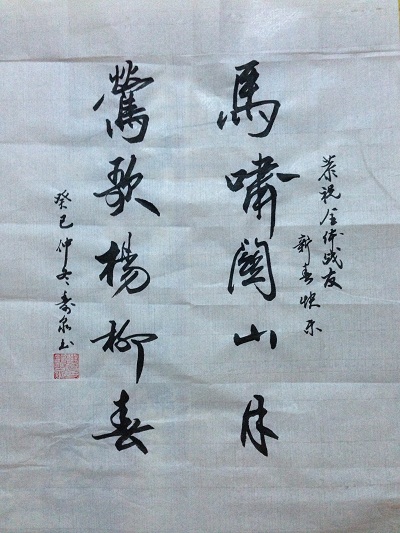 恭祝全体战友
新春快乐
馬嘯關山月
鶯歌楊柳春
癸巳仲冬寿泉书